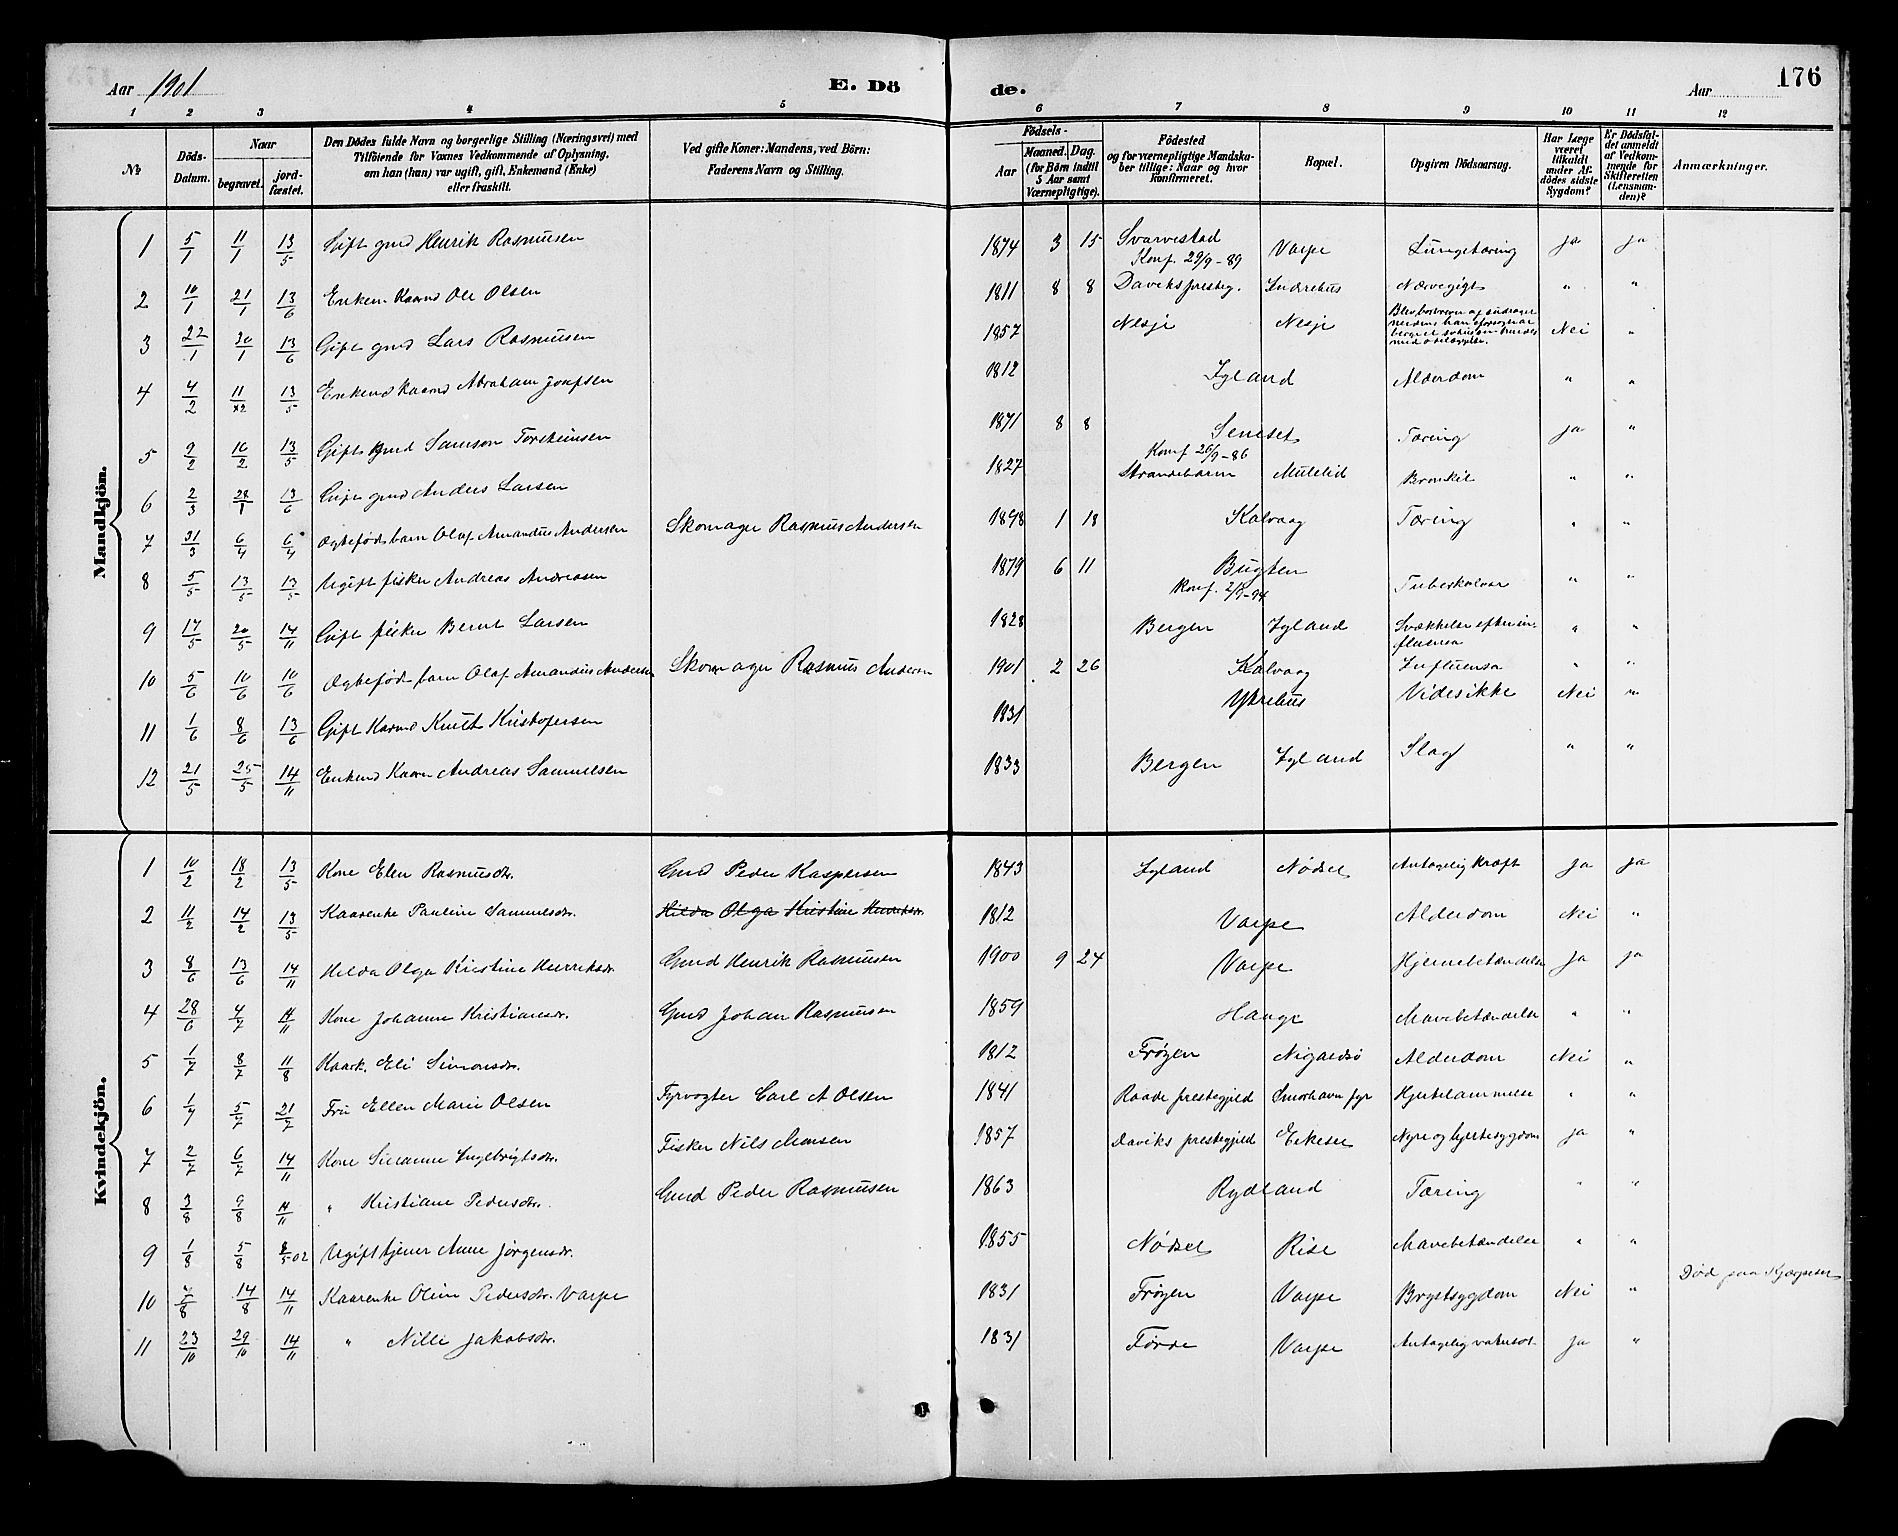 176
Aar 1901 E. Dö de. Aar
1 2 3 4 5 6 7 8 9 10 11 12
№
Döds-Datum.
Naar
begravet.
jord-fæstet.
Den Dödes fulde Navn og borgerlige Stilling (Næringsvei) med
Tilföiende for Voxnes Vedkommende af Oplysning,
om han (hun) var ugift, gift, Enkemand (Enke)
eller fraskilt.
Ved gifte Koner: Mandens, ved Börn:
Faderens Navn og Stilling.
Födsels-
Aar
Maaned. Dag.
(for Börn indtil
5 Aar samt
Værnepligtige).
Födested
og for værnepligtige Mandska-
ber tillige: Naar og hvor
konfirmeret.
Bopæl.
Opgiven Dödsaarsag.
Har Læge
været
tilkaldt
under Af-
dödes sidste
Sygdom?
Er Dödsfal-
det anmeldt
af Vedkom-
mende for
Skifteretten
(Lensman-
den)?
Anmærkninger.
Mandkjön.
1 5/1 11/1 13/5 Gift gmd Henrik Rasmusen 1874 3 15 Svarvestad Konf. 29/9-89 Varpe Lungetæring ja ja
2 10/1 21/1 13/6 Enkem. Kaarmd Ole Olsen 1811 8 8 Davikspresteg. Indrehus Nervegigt " "
3 22/1 30/1 13/6 Gift gmd Lars Rasmusen 1857 Nesje Nesje Nei "
4 4/2 11/2 13/5 Enkemd Kaarmd Abraham Josefsen 1812 Igland Alderdom " "
5 9/2 16/2 13/5 Gift gmd Samson Torsteinsen 1871 8 8 Senesel Konf 26/9-86 Tæring ja "
6 2/3 28/1 13/6 Gift gmd Anders Larsen 1827 Strandebarm Mulelid Bronkit " "
7 31/3 6/4 6/4 Ægtefødt barn Olaf Amandus Andersen Skomager Rasmus Andersen 1898 1 18 Kalvaag Tæring " "
8 5/5 13/5 13/5 Ugift fisker Andreas Andreasen 1879 6 11 Bugten Konf. -94 Tuberkulose " "
9 17/5 20/5 14/11 Gift fisker Bernt Larsen 1828 Bergen Igland Svækkelse efter influensa " "
10 5/6 10/6 10/6 Ægtefødt barn Olaf Amandus Andersen Skomager Rasmus Andersen 1901 2 26 Kalvaag Influensa " "
11 1/6 8/6 13/6 Gift Kaarmd Knut Kristofersen 1831 Ytrehus Videsikke Nei "
12 21/5 25/5 14/11 Enkemd Kaarm Andreas Samuelsen 1833 Bergen Igland Slag " "
Kvindekjön.
1 10/2 18/2 13/5 Kone Elen Rasmusdtr. Gmd Peder Kaspersen 1843 Igland Nødset Antagelig kræft ja ja
2 11/2 14/2 13/5 Kaarenke Pauline Samuelsdtr. Hilda Olga Kristine Henriksdr. 1812 Varpe Alderdom Nei "
3 8/6 13/6 14/11 Hilda Olga Kristine Henriksdr. Gmd Henrik Rasmusen 1900 9 24 Varpe Hjernebetændelse ja ja
4 28/6 4/7 14/11 Kone Johanne Kristiansdr. Gmd Johan Rasmusen 1859 Hauge Mavebetændelse " "
5 1/7 8/7 11/8 Kaark. Eli Simonsdr. 1812 Frøyen Nigardsø Alderdom Nei "
6 1/7 5/7 21/7 Fru Ellen Marie Olsen Fyrvogter Carl A Olsen 1841 Raade prestegjeld Smørhavn fyr Hjertelammelse " "
7 2/7 6/7 14/11 Kone Susanne Ingebrigtsdr. Fisker Nils Monsen 1857 Daviks prestegjeld Eikeset Nyre og hjertesygdom ja "
8 3/8 9/8 14/11 " Kristiane Pedersdtr. Gmd Peder Rasmusen 1863 Rydland Tæring " "
9 1/8 5/8 8/5 02 Ugift tjener Anne Jørgensdr. 1855 Nødset Rise Mavebetændelse " "
10 7/8 14/8 14/11 Kaarenke Oline Pedersdtr. Varpe 1831 Frøyen Varpe Brystsygdom Nei " Død paa
11 23/10 29/10 14/11 " Nille Jakobsdtr. 1831 Førde Varpe Antagelig vatersot ja "